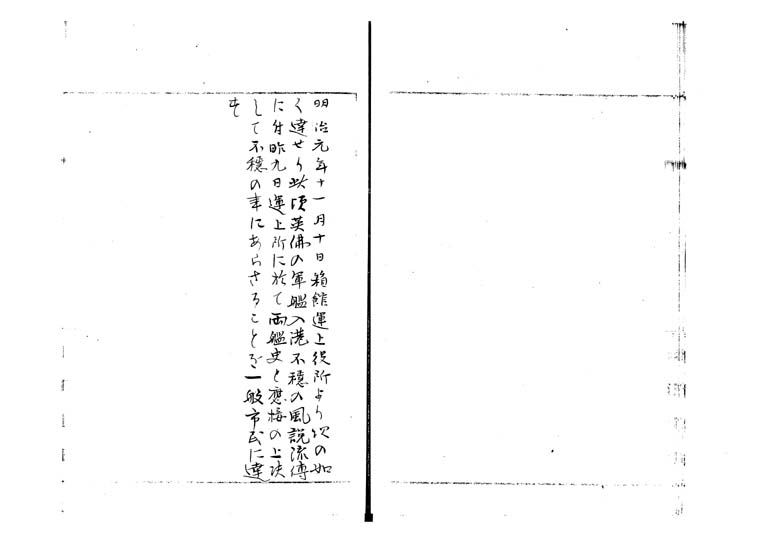 明治元年十一月十日箱館運上役所より次の如
く達せり此頃英佛の軍艦入港不穏の風説流傳
に付昨九日運上所に於て両艦吏と應接の上决
して不穏の事にあらさることを一般市民に達
す